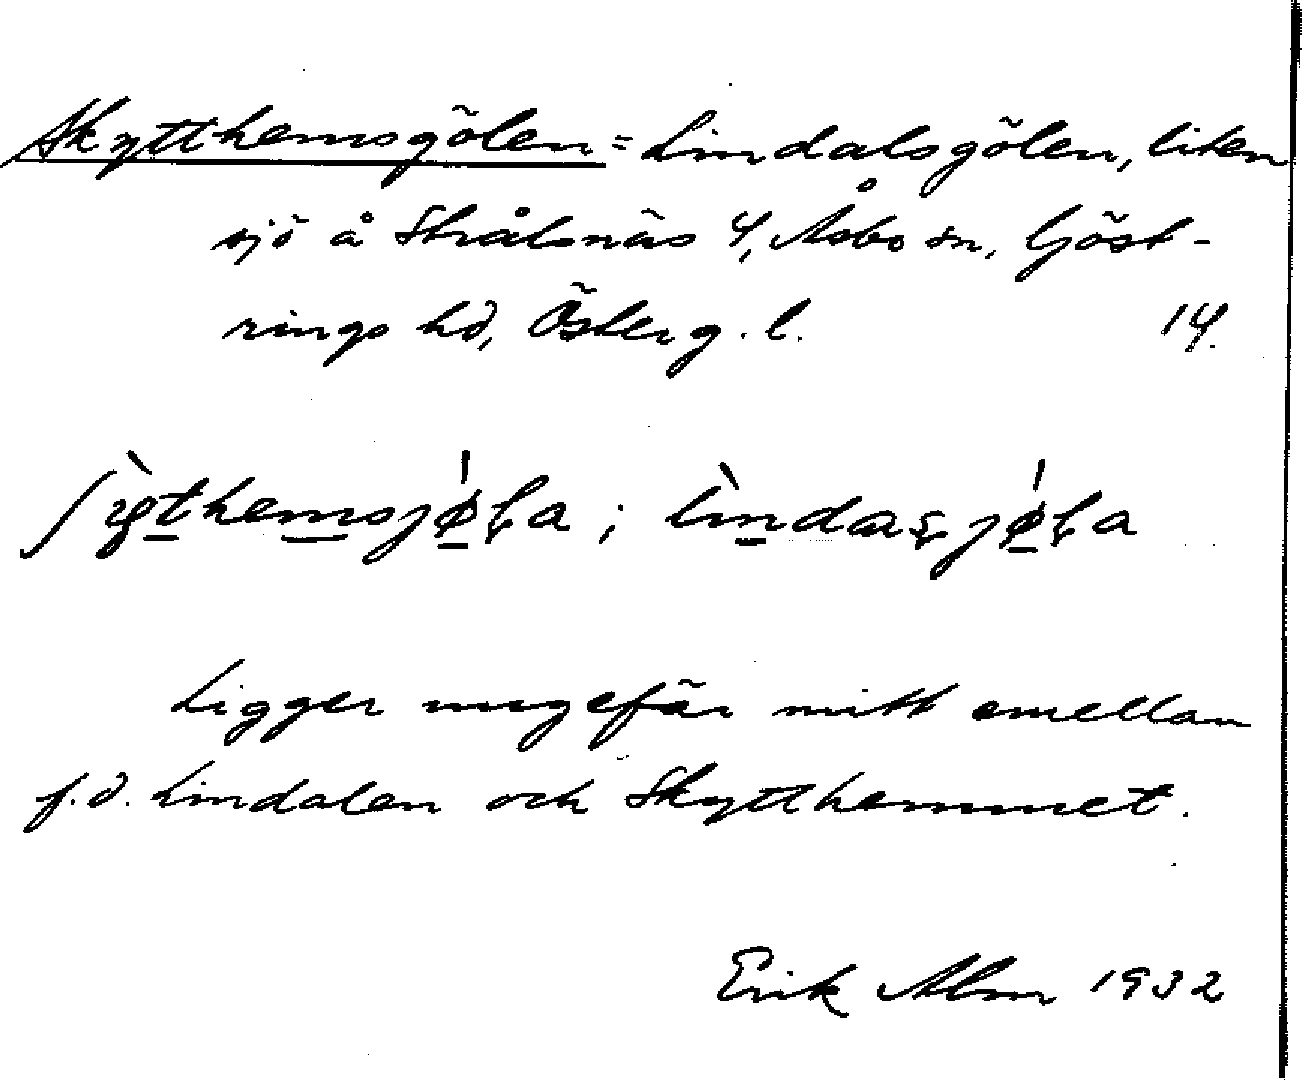 Skytthemsgölen = Lindalsgölen, liten
sjö å Strålsnäs 4, Åsbo sn, Göst-
rings hd, Österg. l. 14.
lindaɽjøɽa
Ligger ungefär mitt emellan
f.d. Lindalen och Skytthemmet.
Erik Alm 1932